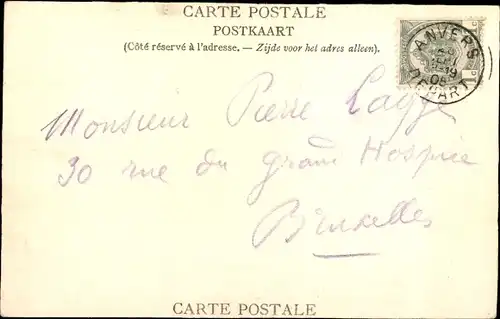 CARTE POSTALE
POSTKAART
(Côté réservé à l'adresse. — Zijde voor het adres alleen).
ANVERS
DEPART
1 c
Monsieur Pierre
30 rue du grand Hospice
Bruxelles
CARTE POSTALE